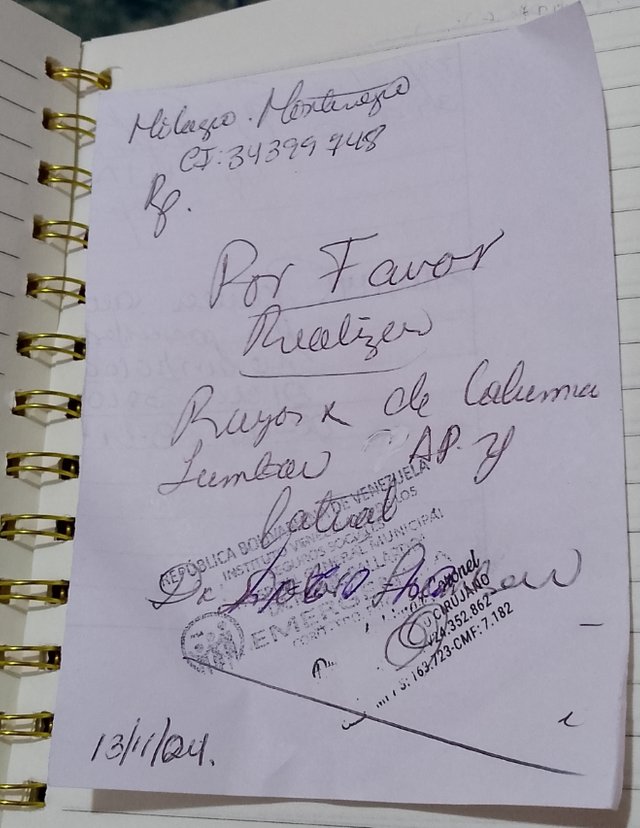 Milagro. Montenegro
CI: 34399748
Rp.
Por Favor
Realizar
Rayos x de Columna
Lumbar AP. y
Lateral
REPÚBLICA BOLIVARIANA DE VENEZUELA
INSTITUTO VENEZOLANO DE LOS
SEGUROS SOCIALES
MUNICIPAL
Dx
EMERGENCIA
Coronel
CIRUJANO
24.352.862
163.723-CMF: 7.182
13/11/24.